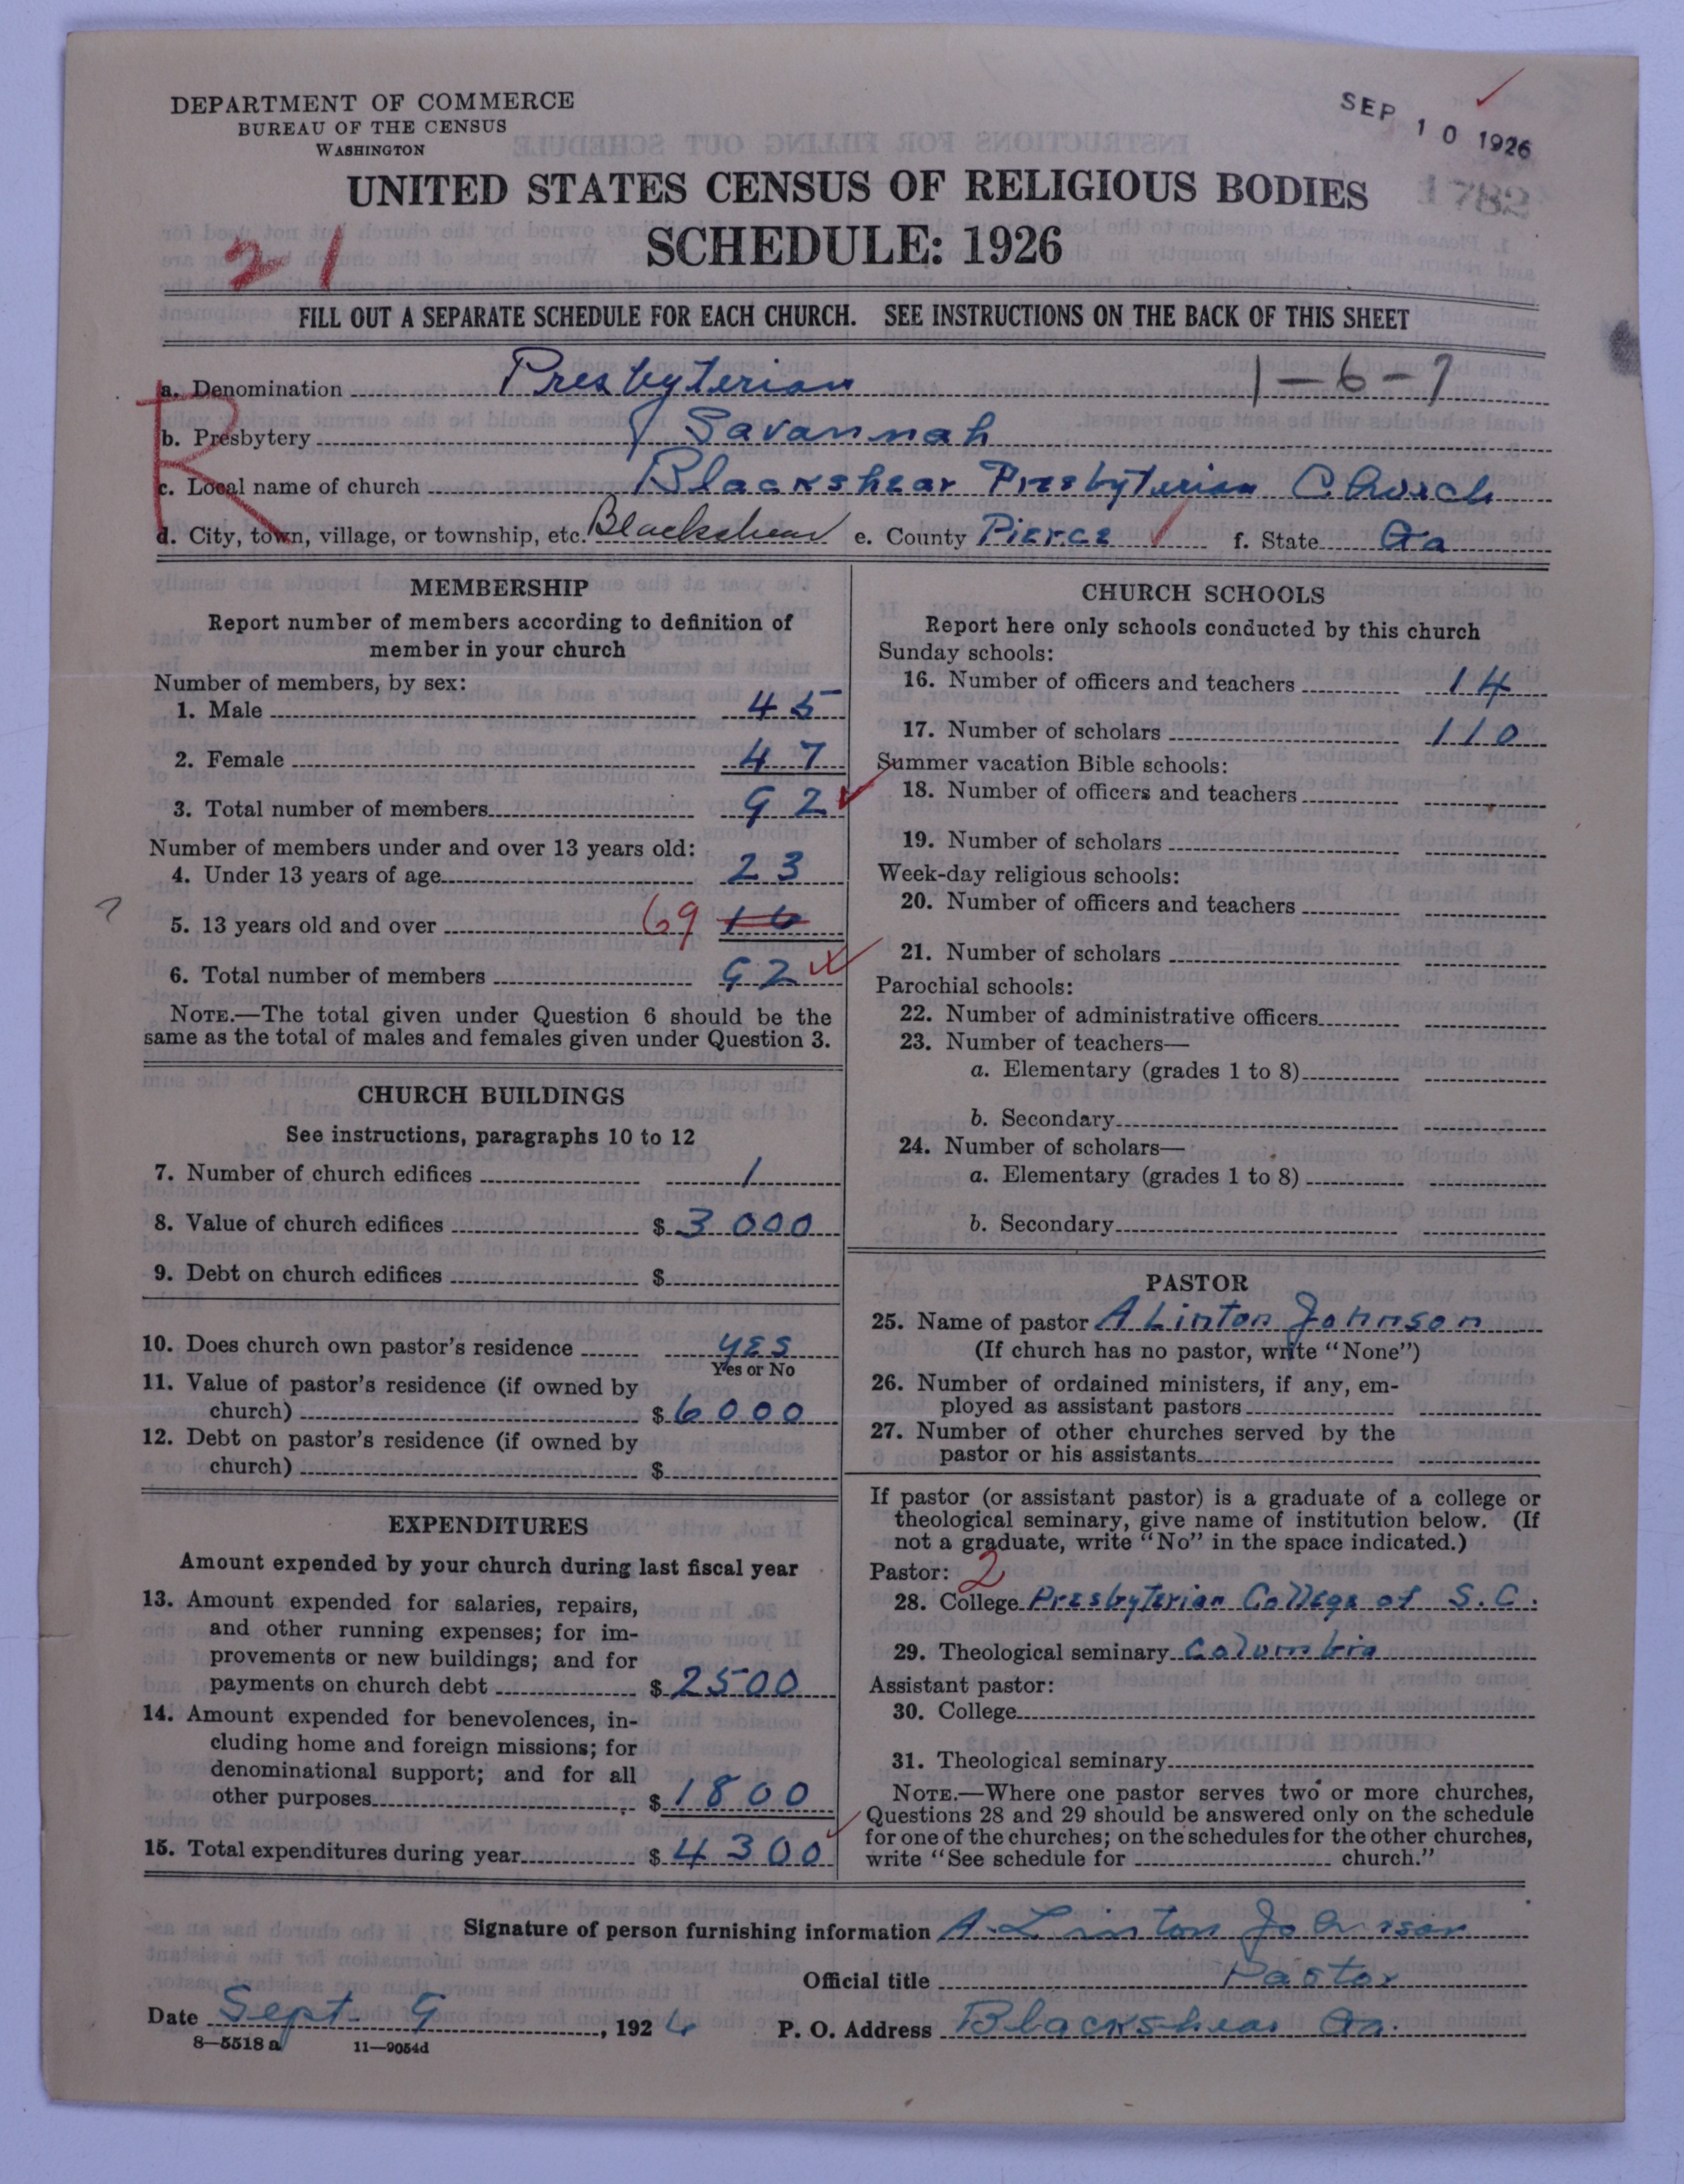 DEPARTMENT OF COMMERCE
BUREAU OF THE CENSUS
WASHINGTON
SEP 10 1926
1782
UNITED STATES CENSUS OF RELIGIOUS BODIES
SCHEDULE: 1926
21
FILL OUT A SEPARATE SCHEDULE FOR EACH CHURCH. SEE INSTRUCTIONS ON THE BACK OF THIS SHEET
R
a. Denomination Presbyterian 1-6-7
b. Presbytery Savannah
c. Local name of church Blackshear Presbyterian Church
d. City, town, village, or township, etc. Blackshear e. County Pierce f. State Ga
MEMBERSHIP
Report number of members according to definition of
member in your church
Number of members, by sex:
1. Male 45
2. Female 47
3. Total number of members 92
Number of members under and over 13 years old:
4. Under 13 years of age 23
5. 13 years old and over 69 16
6. Total number of members 92
NOTE.—The total given under Question 6 should be the
same as the total of males and females given under Question 3.
CHURCH BUILDINGS
See instructions, paragraphs 10 to 12
7. Number of church edifices 1
8. Value of church edifices $ 3000
9. Debt on church edifices $
10. Does church own pastor's residence yes
Yes or No
11. Value of pastor's residence (if owned by
church) $ 6000
12. Debt on pastor's residence (if owned by
church) $
EXPENDITURES
Amount expended by your church during last fiscal year
13. Amount expended for salaries, repairs,
and other running expenses; for im-
provements or new buildings; and for
payments on church debt $ 2500
14. Amount expended for benevolences, in-
cluding home and foreign missions; for
denominational support; and for all
other purposes $ 1800
15. Total expenditures during year $ 4300
CHURCH SCHOOLS
Report here only schools conducted by this church
Sunday schools:
16. Number of officers and teachers 14
17. Number of scholars 110
Summer vacation Bible schools:
18. Number of officers and teachers
19. Number of scholars
Week-day religious schools:
20. Number of officers and teachers
21. Number of scholars
Parochial schools:
22. Number of administrative officers
23. Number of teachers—
a. Elementary (grades 1 to 8)
b. Secondary
24. Number of scholars—
a. Elementary (grades 1 to 8)
b. Secondary
PASTOR
25. Name of pastor A Linton Johnson
(If church has no pastor, write "None")
26. Number of ordained ministers, if any, em-
ployed as assistant pastors
27. Number of other churches served by the
pastor or his assistants
If pastor (or assistant pastor) is a graduate of a college or
theological seminary, give name of institution below. (If
not a graduate, write "No" in the space indicated.)
Pastor: 2
28. College Presbyterian College of S.C.
29. Theological seminary Columbia
Assistant pastor:
30. College
31. Theological seminary
NOTE.—Where one pastor serves two or more churches,
Questions 28 and 29 should be answered only on the schedule
for one of the churches; on the schedules for the other churches,
write "See schedule for church."
Signature of person furnishing information A. Linton Johnson
Official title Pastor
Date Sept. 9, 1926 P. O. Address Blackshear Ga.
8—5518 a 11—9054d